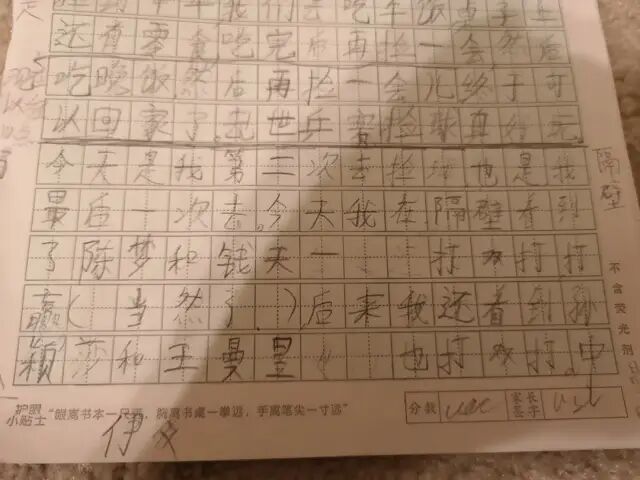 还有零食吃完后再捡一会然后
吃晚饭,然后再捡一会儿终于可
以回家了,去世乒赛捡球真好玩.
今天是我第二次去捡球,也是我
最后一次去,今天我在隔壁看到
了陈梦和钱天一 打双打打
赢( 当然了 )后来我还看到孙
颖莎和王曼昱 也打双打,中
隔壁
不含荧光剂
护眼小贴士
"眼离书本一尺远,胸离书桌一拳远,手离笔尖一寸远"
分数
家长签字